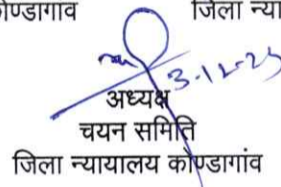 कोण्डागांव जिला न्या
3-12-25
अध्यक्ष
चयन समिति
जिला न्यायालय कोण्डागांव